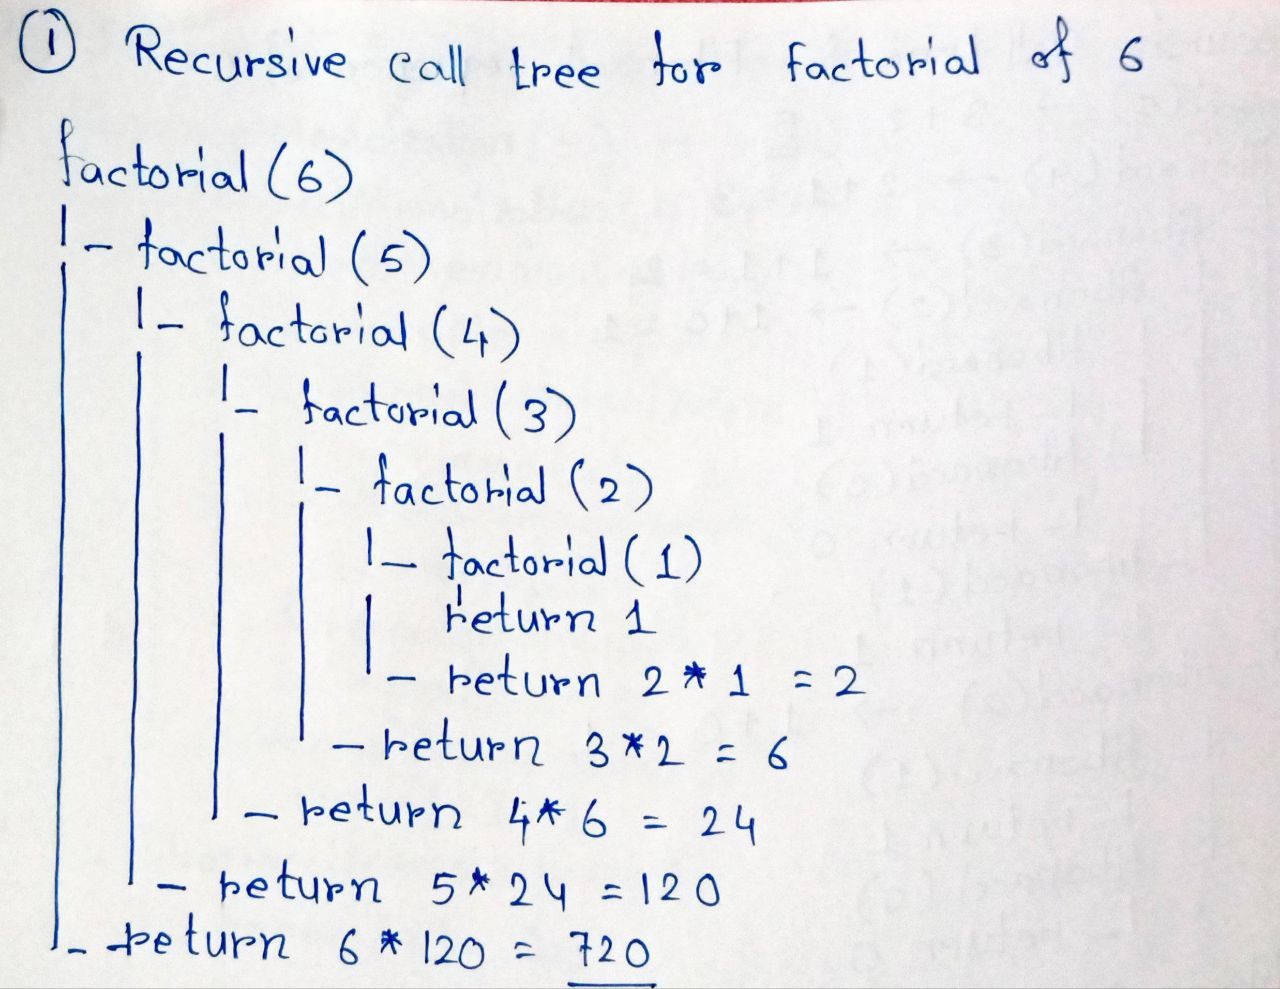 ① Recursive call tree for factorial of 6
factorial (6)
|- factorial (5)
|- factorial (4)
|- factorial (3)
|- factorial (2)
|- factorial (1)
return 1
- return 2 * 1 = 2
- return 3 * 2 = 6
- return 4 * 6 = 24
- return 5 * 24 = 120
- return 6 * 120 = 720